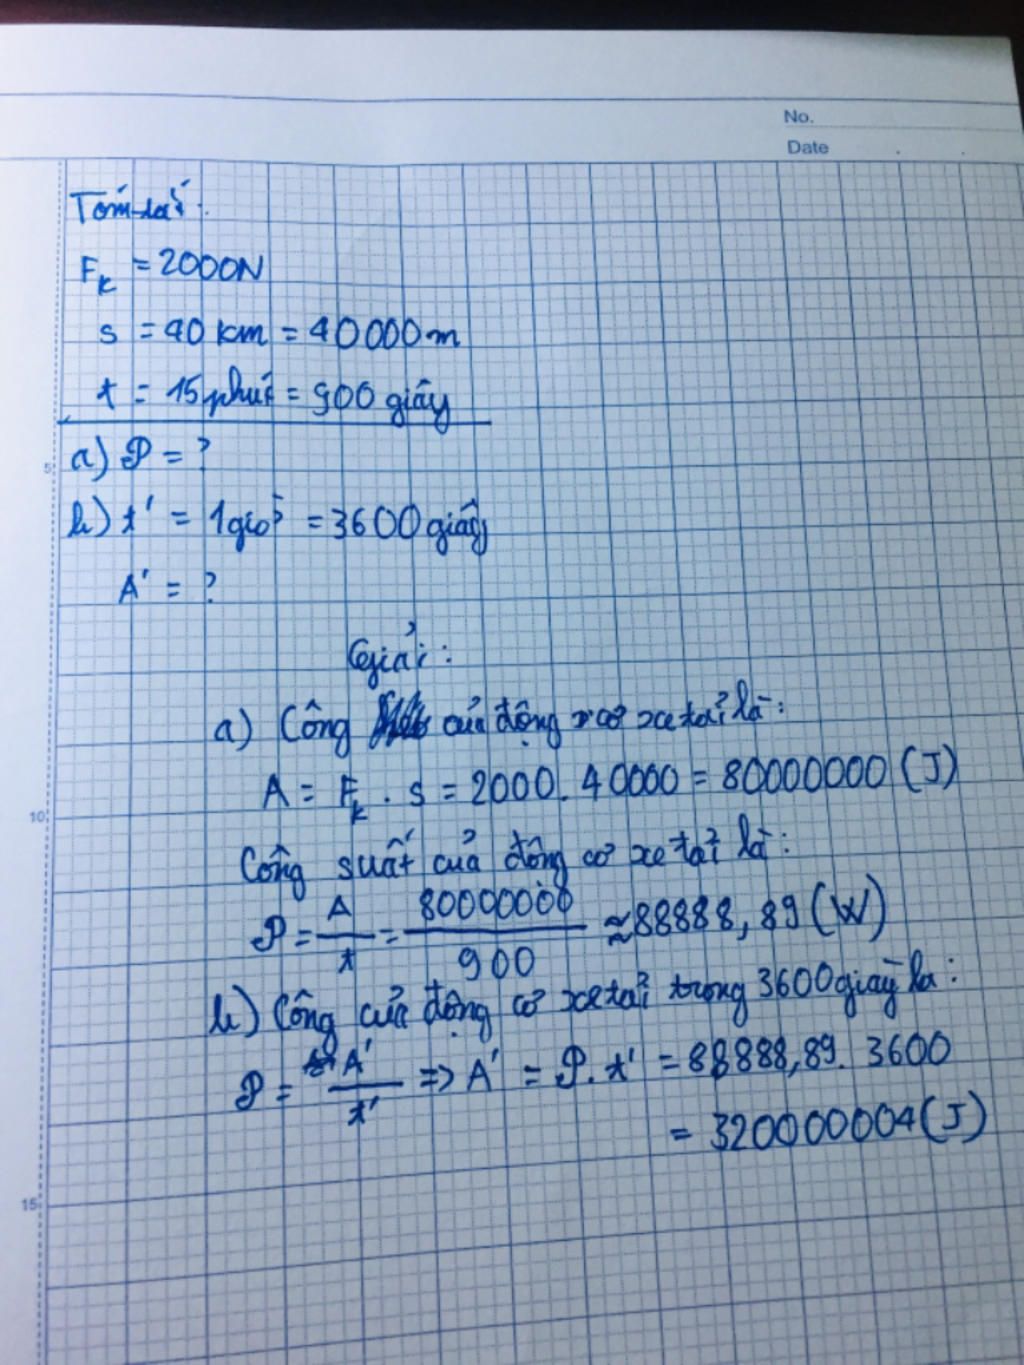 No.
Date
Tóm tắt:
Fk = 2000N
s = 40 km = 40000m
t = 15 phút = 900 giây
5
a) P = ?
b) t' = 1 giờ = 3600 giây
A' = ?
Giải:
a) Công của động cơ xe tải là:
10
A = Fk . s = 2000. 40000 = 80000000 (J)
Công suất của động cơ xe tải là:
P = A/t = 80000000/900 ≈ 88888,89 (W)
b) Công của động cơ xe tải trong 3600 giây là:
P = A'/t' => A' = P. t' = 88888,89. 3600
= 320000004 (J)
15